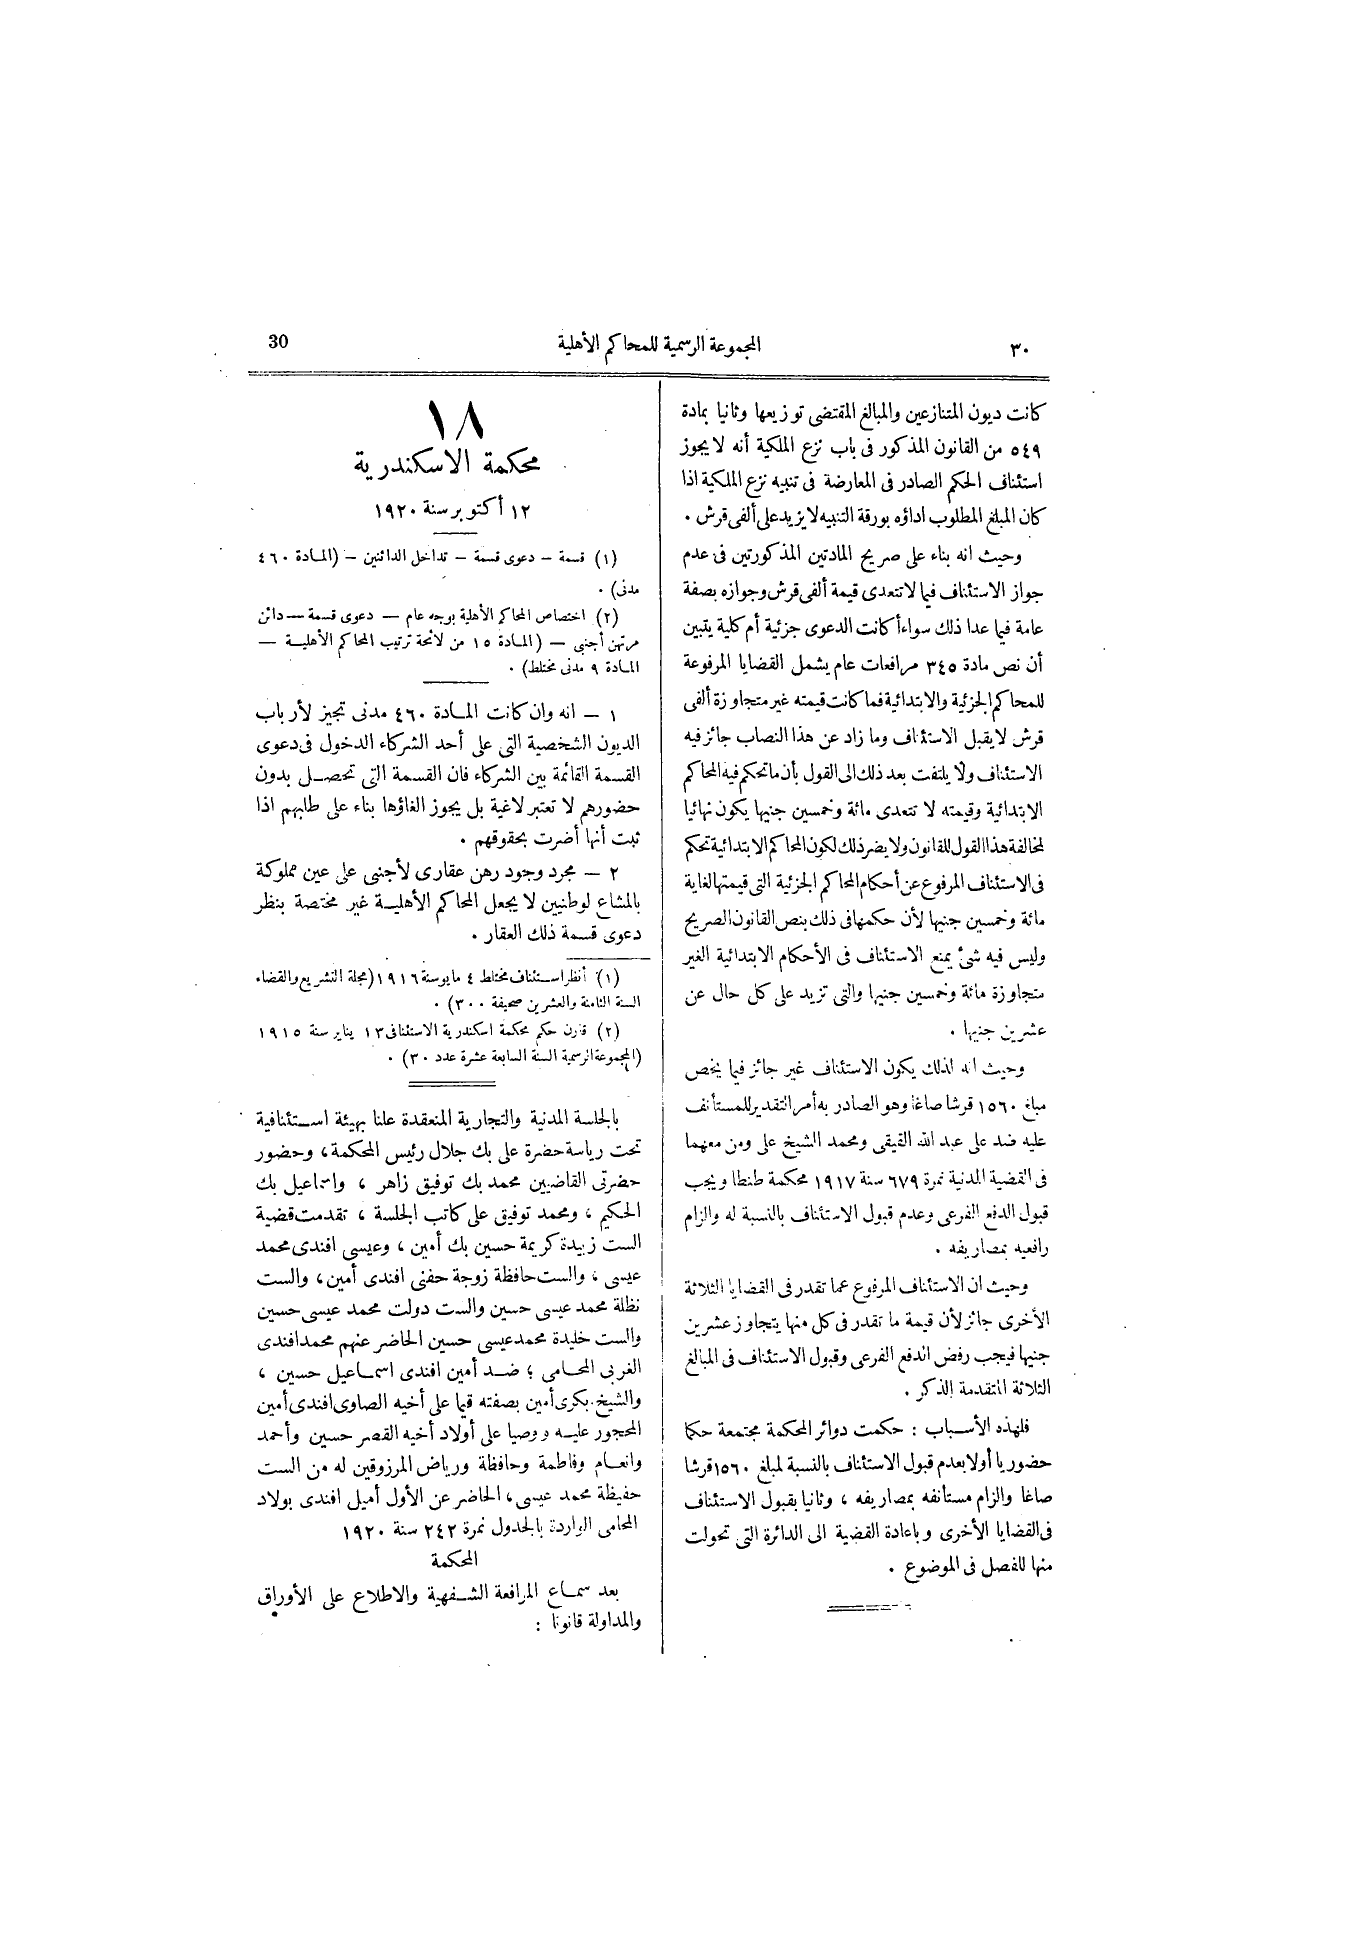 ٣٠
المجموعة الرسمية للمحاكم الأهلية
30
كانت ديون المتنازعين والمبالغ المقتضى توزيعها وثانيا بمادة
٥٤٩ من القانون المذكور فى باب نزع الملكية أنه لا يجوز
استئناف الحكم الصادر فى المعارضة فى تنبيه نزع الملكية اذا
كان المبلغ المطلوب اداؤه بورقة التنبيه لا يزيد على ألفى قرش .
وحيث انه بناء على صريح المادتين المذكورتين فى عدم
جواز الاستئناف فيما لا تتعدى قيمة ألفى قرش وجوازه بصفة
عامة فيما عدا ذلك سواء أكانت الدعوى جزئية أم كلية يتبين
أن نص مادة ٣٤٥ مرافعات عام يشمل القضايا المرفوعة
للمحاكم الجزئية والابتدائية فما كانت قيمته غير متجاوزة ألفى
قرش لا يقبل الاستئناف وما زاد عن هذا النصاب جائز فيه
الاستئناف ولا يلتفت بعد ذلك الى القول بأن ما تحكم فيه المحاكم
الابتدائية وقيمته لا تتعدى مائة وخمسين جنيها يكون نهائيا
لمخالفة هذا القول للقانون ولا يضر ذلك لكون المحاكم الابتدائية تحكم
فى الاستئناف المرفوع عن أحكام المحاكم الجزئية التى قيمتها لغاية
مائة وخمسين جنيها لأن حكمها فى ذلك بنص القانون الصريح
وليس فيه شئ يمنع الاستئناف فى الأحكام الابتدائية الغير
متجاوزة مائة وخمسين جنيها والتى تزيد على كل حال عن
عشرين جنيها .
وحيث انه لذلك يكون الاستئناف غير جائز فيما يخص
مبلغ ١٥٦٠ قرشا صاغا وهو الصادر به أمر التقدير للمستأنف
عليه ضد على عبد الله القيقى ومحمد الشيخ على ومن معهما
فى القضية المدنية نمرة ٦٧٩ سنة ١٩١٧ محكمة طنطا ويجب
قبول الدفع الفرعى وعدم قبول الاستئناف بالنسبة له والزام
رافعيه بمصاريفه .
وحيث ان الاستئناف المرفوع عما تقدر فى القضايا الثلاثة
الأخرى جائز لأن قيمة ما تقدر فى كل منها يتجاوز عشرين
جنيها فيجب رفض الدفع الفرعى وقبول الاستئناف فى المبالغ
الثلاثة المتقدمة الذكر .
فلهذه الأسباب : حكمت دوائر المحكمة مجتمعة حكما
حضوريا أولا بعدم قبول الاستئناف بالنسبة لمبلغ ١٥٦٠ قرشا
صاغا والزام مستأنفه بمصاريفه ، وثانيا بقبول الاستئناف
فى القضايا الأخرى وباعادة القضية الى الدائرة التى تحولت
منها للفصل فى الموضوع .
١٨
محكمة الاسكندرية
١٢ أكتوبر سنة ١٩٢٠
(١) قسمة – دعوى قسمة – تداخل الدائنين – (المادة ٤٦٠
مدنى) .
(٢) اختصاص المحاكم الأهلية بوجه عام – دعوى قسمة – دائن
مرتهن أجنبى – (المادة ١٥ من لائحة ترتيب المحاكم الأهلية –
المادة ٩ مدنى مختلط) .
١ – انه وان كانت المادة ٤٦٠ مدنى تجيز لأرباب
الديون الشخصية التى على أحد الشركاء الدخول فى دعوى
القسمة القائمة بين الشركاء فان القسمة التى تحصل بدون
حضورهم لا تعتبر لاغية بل يجوز الغاؤها بناء على طلبهم اذا
ثبت أنها أضرت بحقوقهم .
٢ – مجرد وجود رهن عقارى لأجنبى على عين مملوكة
بالمشاع لوطنيين لا يجعل المحاكم الأهلية غير مختصة بنظر
دعوى قسمة ذلك العقار .
(١) أنظر استئناف مختلط ٤ مايو سنة ١٩١٦ (مجلة التشريع والقضاء
السنة الثامنة والعشرين صحيفة ٣٠٠) .
(٢) قارن حكم محكمة اسكندرية الاستئنافى ١٣ يناير سنة ١٩١٥
(المجموعة الرسمية السنة السابعة عشرة عدد ٣٠) .
بالجلسة المدنية والتجارية المنعقدة علنا بهيئة استئنافية
تحت رياسة حضرة على بك جلال رئيس المحكمة ، وحضور
حضرتى القاضيين محمد بك توفيق زاهر ، واسماعيل بك
الحكيم ، ومحمد توفيق على كاتب الجلسة ، تقدمت قضية
الست زبيدة كريمة حسين بك أمين ، وعيسى افندى محمد
عيسى ، والست حافظة زوجة حفنى افندى أمين ، والست
نظلة محمد عيسى حسين والست دولت محمد عيسى حسين
والست خليدة محمد عيسى حسين الحاضر عنهم محمد افندى
الغربى المحامى ؛ ضد أمين افندى اسماعيل حسين ،
والشيخ بكرى أمين بصفته قيما على أخيه الصاوى افندى أمين
المحجور عليه ووصيا على أولاد أخيه القصر حسين وأحمد
وانعام وفاطمة وحافظة ورياض المرزوقين له من الست
حفيظة محمد عيسى ، الحاضر عن الأول أميل افندى بولاد
المحامى الواردة بالجدول نمرة ٢٤٢ سنة ١٩٢٠
المحكمة
بعد سماع المرافعة الشفهية والاطلاع على الأوراق
والمداولة قانونا :